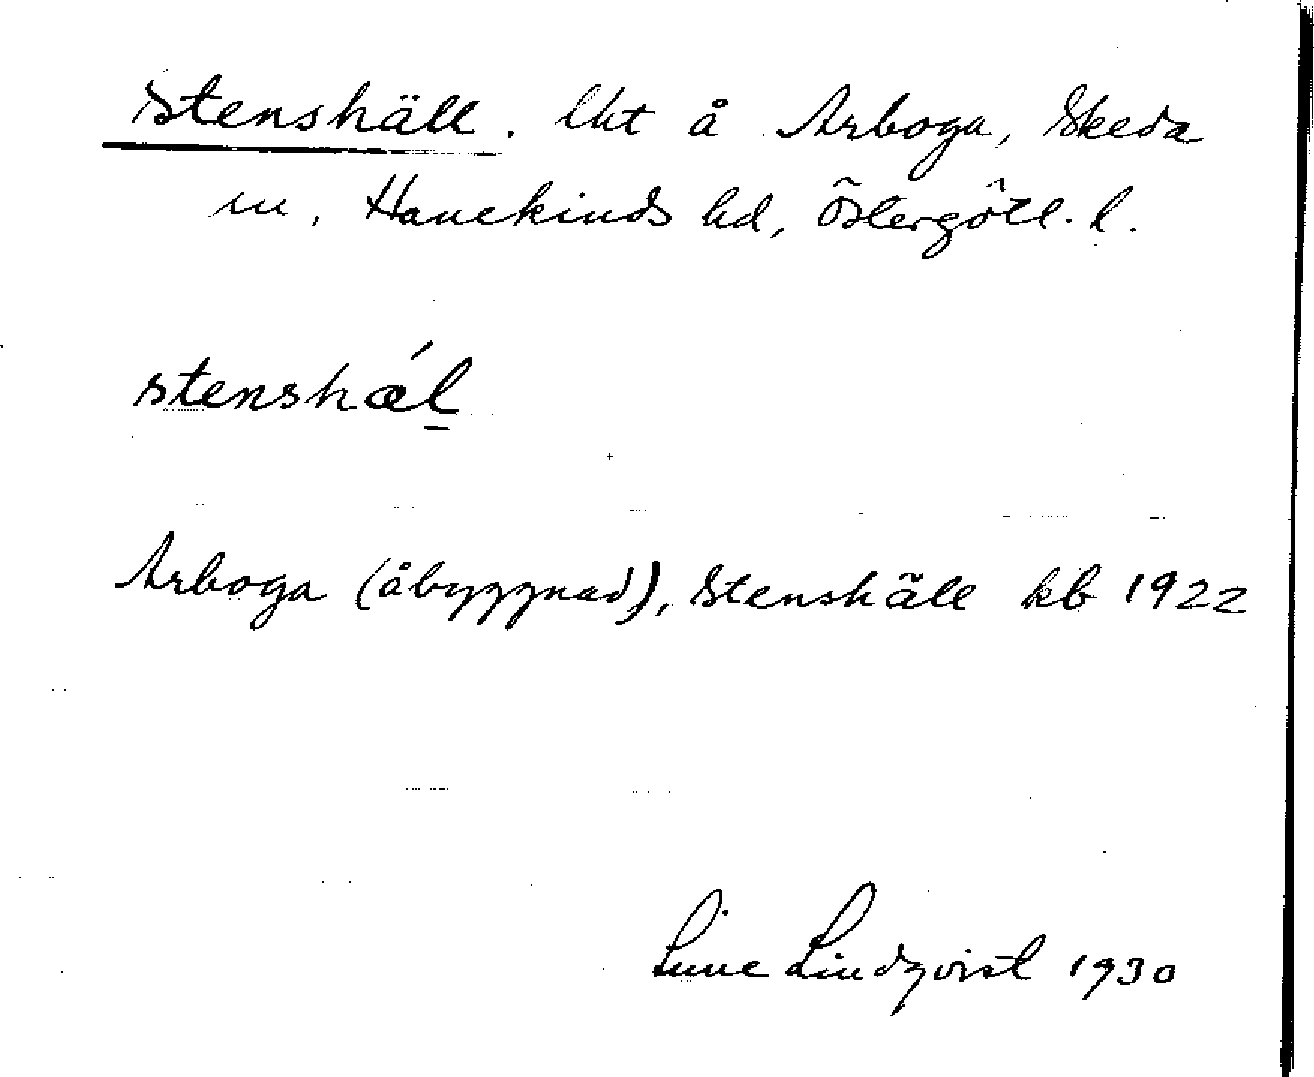 Stenshäll. lht å Arboga, Skeda
sn, Hanekinds hd, Östergötl. l.
stenshǽl̲
Arboga (åbyggnad), Stenshäll kb 1922
Sune Lindqvist 1930